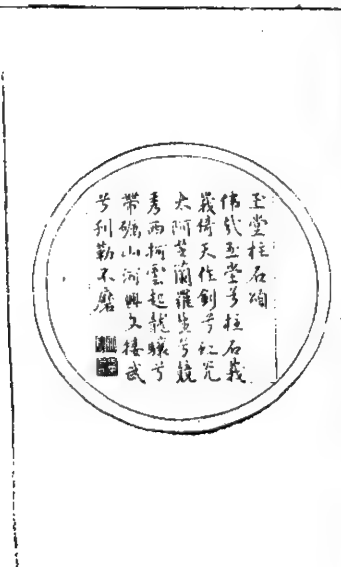 玉堂柱石頌
偉哉玉堂兮柱石峩
峩倚天作劍兮虹光
大阿芝蘭羅生兮競
秀西掖雲起龍驤兮
帶礪山河興文接武
兮利勒不磨